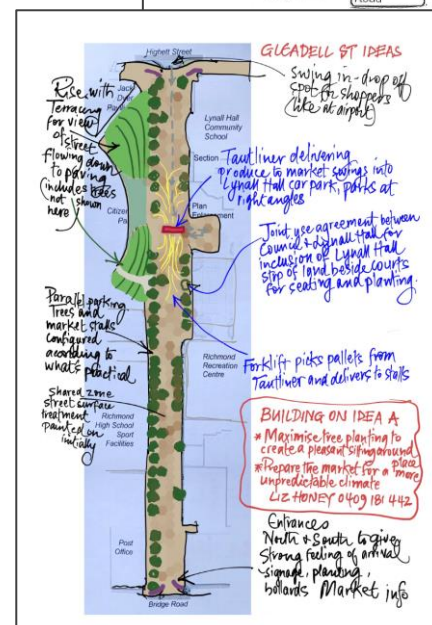 Road
Highett Street
GLEADELL ST IDEAS
Swing in-drop off
spot for shoppers
(like at airport)
Rise with
Terracing
for view
of street
flowing down
to paving
(includes trees
not shown
here)
Jack
Dyer
Lynall Hall
Community
School
Section
Plan
Citizen
Tautliner delivering
produce to market swings into
Lynall Hall car park, parks at
right angles
Joint use agreement between
Council & Lynall Hall for
inclusion of Lynall Hall
strip of land beside courts
for seating and planting.
Parallel parking
Trees and
market stalls
configured
according to
what's practical
Forklift picks pallets from
Tautliner and delivers to stalls
Richmond
Recreation
Centre
shared zone
street surface
treatment
painted on
initially
Richmond
High School
Sport
Facilities
BUILDING ON IDEA A
* Maximise tree planting to
create a pleasant sitting around place
* Prepare the market for a more
unpredictable climate
LIZ HONEY 0409 181 442
Post
Office
Entrances
North & South to give
strong feeling of arrival
- signage, planting,
bollards Market info
Bridge Road